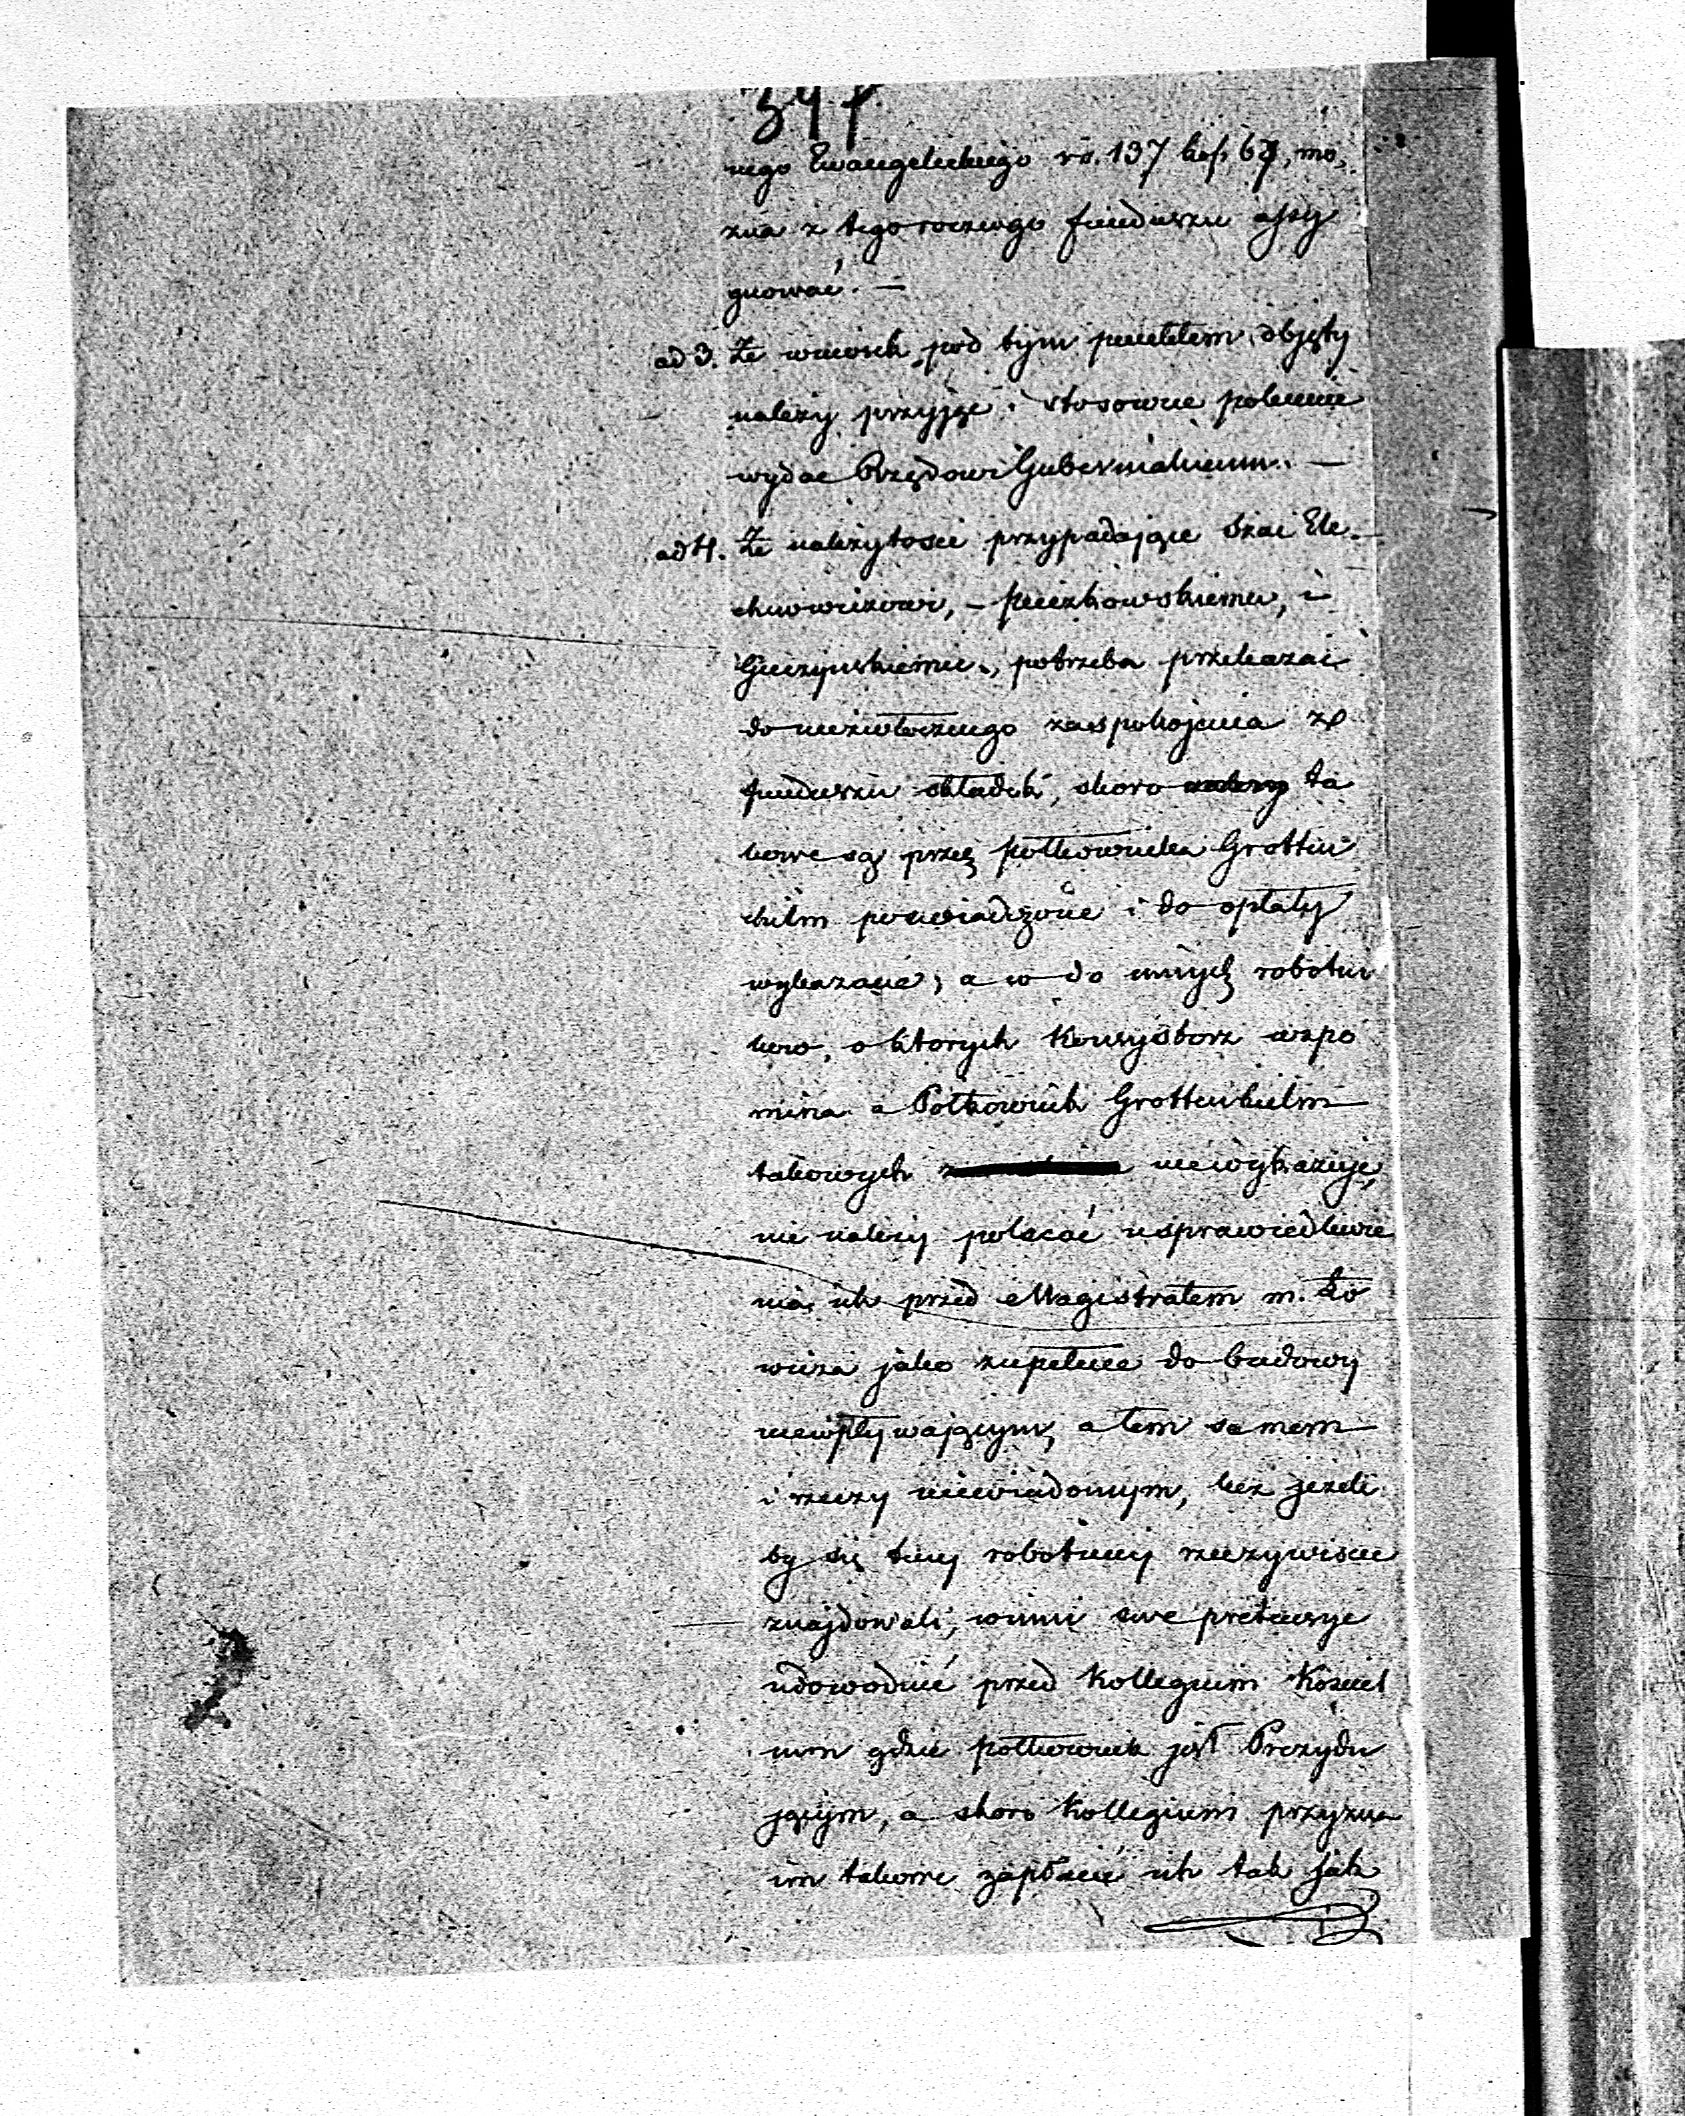 nego Ewangelickiego rs. 137 kop. 67, mo,
żna z tegorocznego funduszu assy
gnować. —
ad 3. Że wniosek pod tym punktem objęty
należy przyjąć i stosowne polecenie
wydać Rządowi Gubernialnemu. —
ad 4. Że należytości przypadające
i
potrzeba przekazać
do niezwłocznego zaspokojenia z
funduszu składek, skoro ta
kowe są przez półkownika Grotten
hielm poświadczone i do opłaty
wykazane; a co do innych robotni
ków, o których Konsystorz wspo
mina a Połkownik Grottenhielm
takowych niewykazuje,
nie należy polecać usprawiedliwie
nia ich przed Magistratem m. Ło
wicza jako zupełnie do budowy
niewpływającym, a tem samem
i rzeczy niewiadomym, lecz jeżeli
by się tacy robotnicy rzeczywiscie
znajdowali, winni swe pretensye
udowodnić przed Kollegium Kosciel
nem gdzie półkownik jest Prezydu
jącym, a skoro Kollegium przyzna
im takowe zapłacić ich tak jak